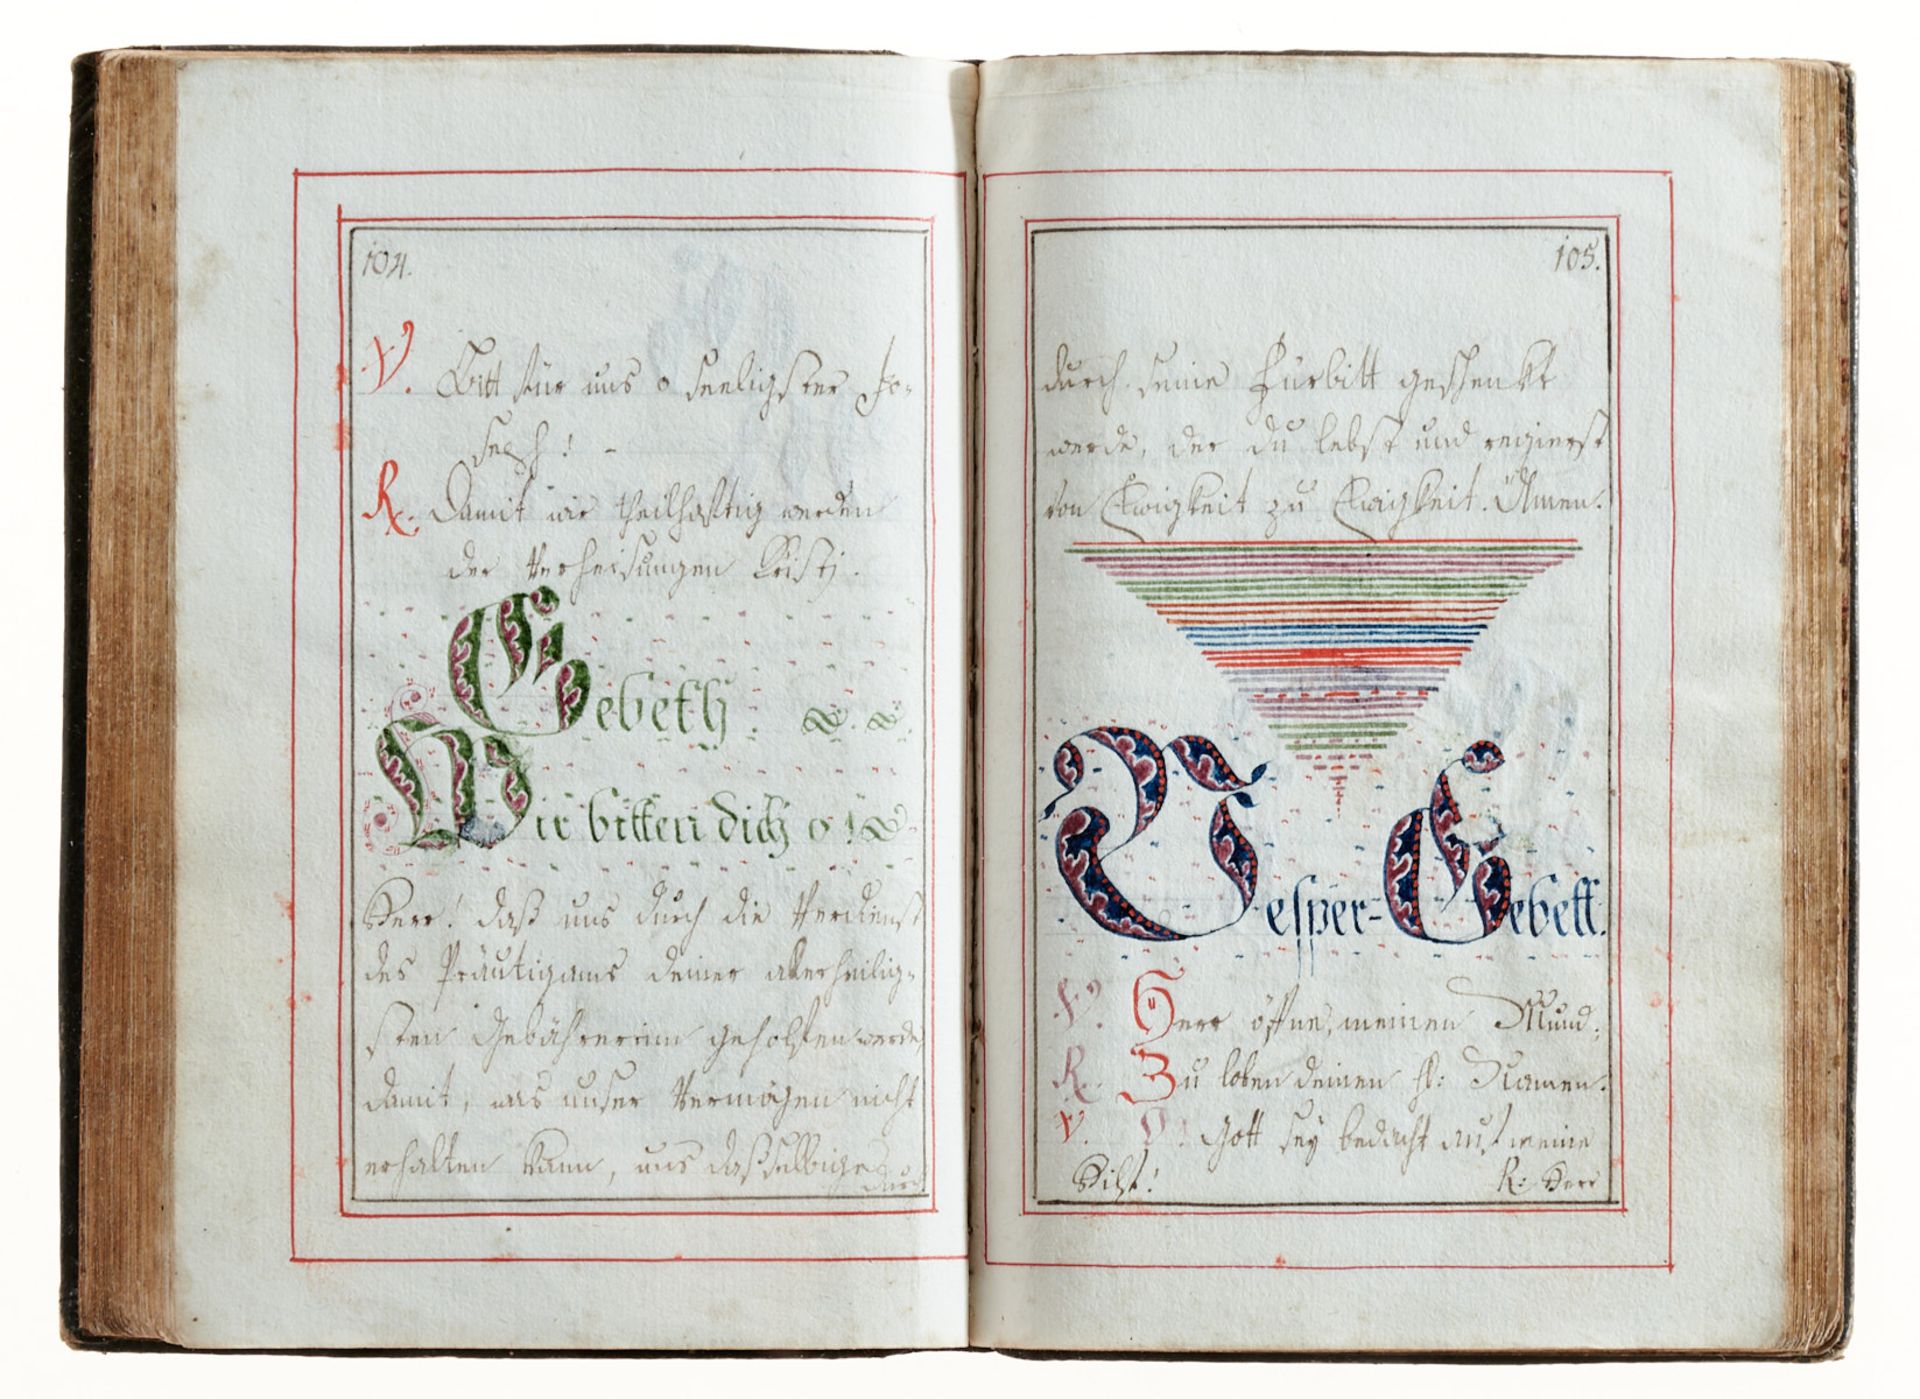 104.
V. Bitt für uns o seeligster Jo-
seph! -
R. Damit wir theilhaftig werden
der Verheisungen Kristj.
Gebeth.
Wir bitten dich o!
Herr! daß uns durch die Verdienst
des Präutigams deiner allerheilig-
sten Gebährerinn geholfen werde,
damit, was unser Vermögen nicht
erhalten kann, uns daßselbige
durch
105.
durch seine Fürbitt geschenkt
werde, der du lebst und regierst
von Ewigkeit zu Ewigkeit. Amen.
Vesper-Gebett.
V. Herr öffne, meinen Mund,
R. Zu loben deinen H: Namen.
V. O! Gott sey bedacht auf meine
Hilf! R: Herr